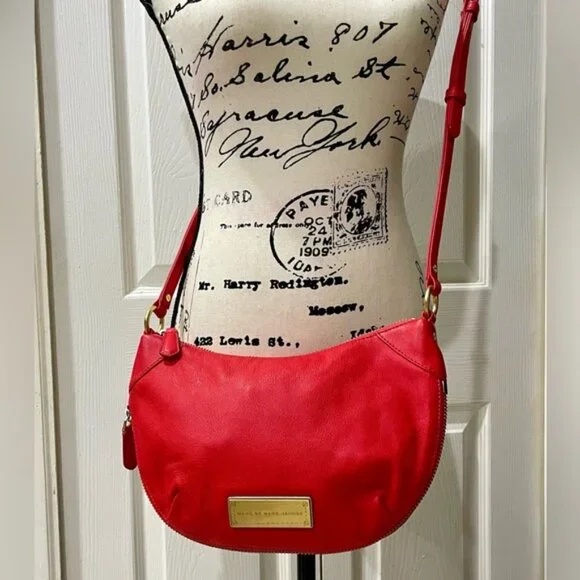 Harris 807
So. Salina St.
Syracuse
New York
CARD
This space for address only
PAYE
OCT
24
7 PM
1909
IDA
Mr. Harry Redington.
Moscow,
422 Lewis St.,
MARC BY MARC JACOBS